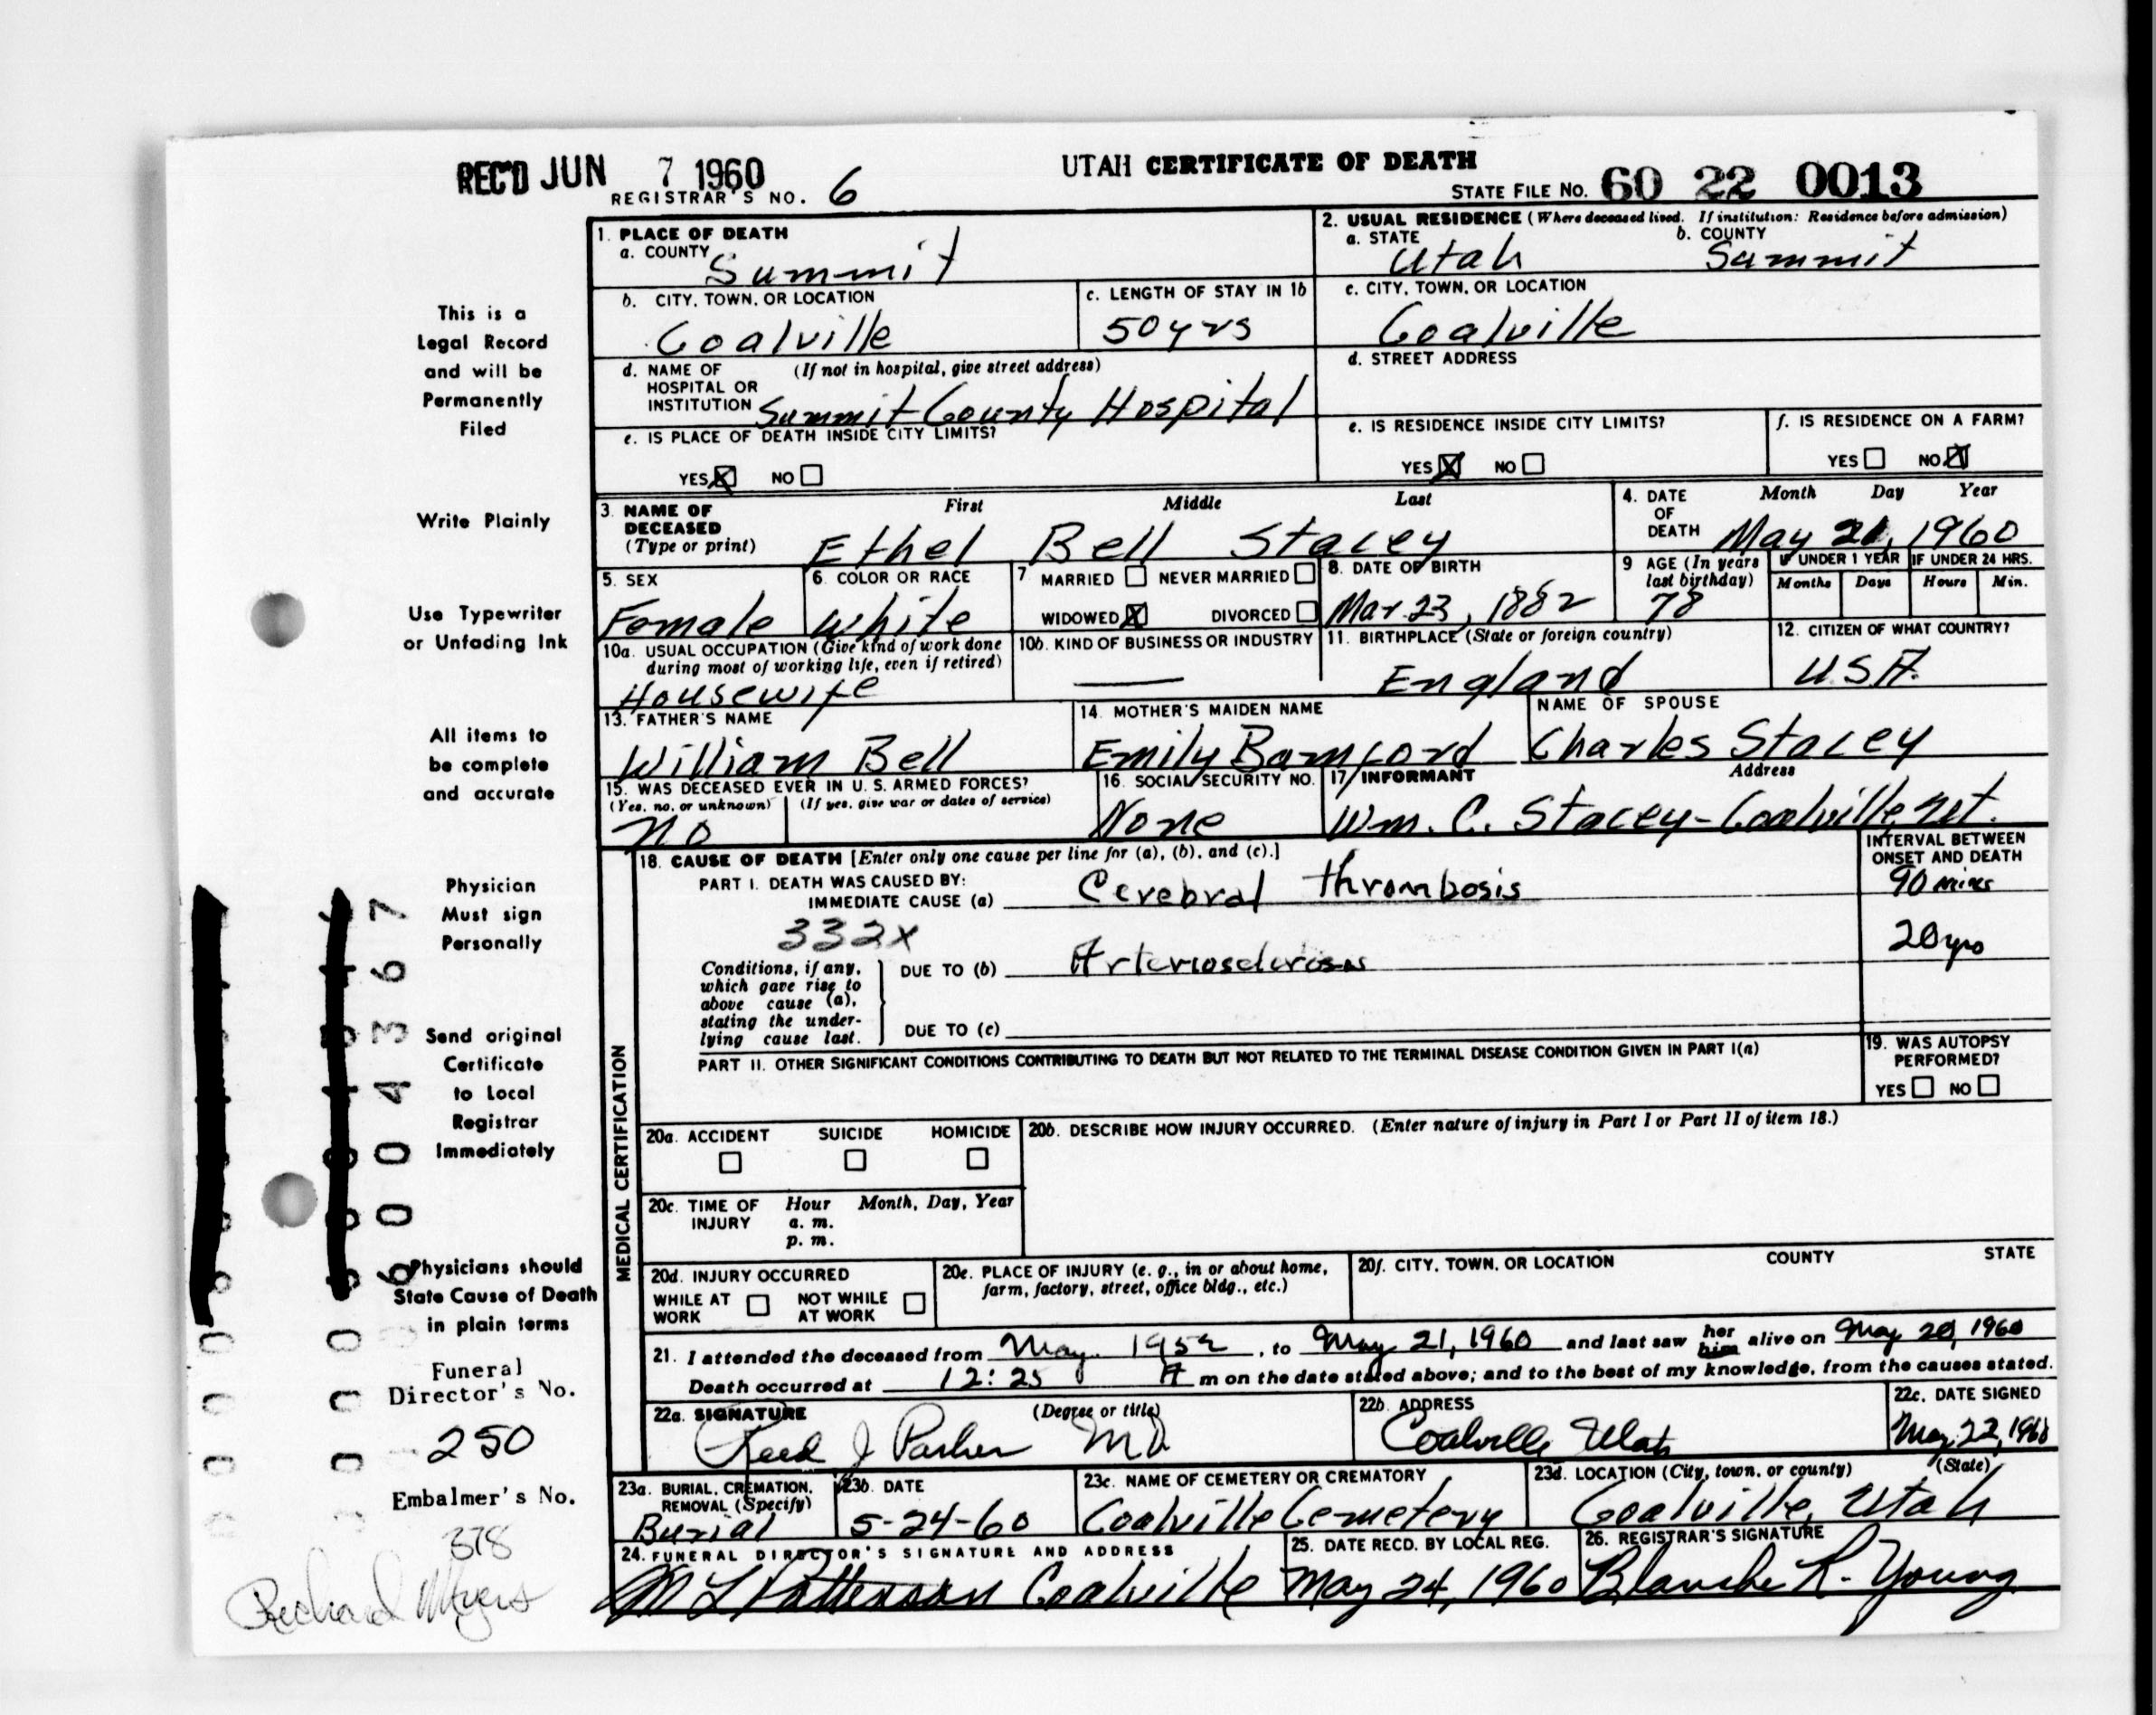 REC'D JUN 7 1960
UTAH CERTIFICATE OF DEATH
REGISTRAR'S NO. 6
STATE FILE NO. 60 22 0013
1. PLACE OF DEATH
a. COUNTY Summit
2. USUAL RESIDENCE (Where deceased lived. If institution: Residence before admission)
a. STATE Utah b. COUNTY Summit
b. CITY, TOWN, OR LOCATION Coalville
c. LENGTH OF STAY IN 1b 50 yrs
c. CITY, TOWN, OR LOCATION Coalville
d. NAME OF (If not in hospital, give street address)
HOSPITAL OR
INSTITUTION Summit County Hospital
d. STREET ADDRESS
e. IS PLACE OF DEATH INSIDE CITY LIMITS?
YES X NO
e. IS RESIDENCE INSIDE CITY LIMITS?
YES X NO
f. IS RESIDENCE ON A FARM?
YES NO X
3. NAME OF DECEASED (Type or print)
First Middle Last
Ethel Bell Stacey
4. DATE OF DEATH
Month Day Year
May 21, 1960
5. SEX Female
6. COLOR OR RACE White
7 MARRIED NEVER MARRIED
WIDOWED X DIVORCED
8. DATE OF BIRTH Mar. 23, 1882
9 AGE (In years last birthday) 78
IF UNDER 1 YEAR Months Days
IF UNDER 24 HRS. Hours Min.
10a. USUAL OCCUPATION (Give kind of work done during most of working life, even if retired)
Housewife
10b. KIND OF BUSINESS OR INDUSTRY —
11. BIRTHPLACE (State or foreign country) England
12. CITIZEN OF WHAT COUNTRY? U.S.A.
13. FATHER'S NAME William Bell
14. MOTHER'S MAIDEN NAME Emily Bamford
NAME OF SPOUSE Charles Stacey
15. WAS DECEASED EVER IN U.S. ARMED FORCES?
(Yes, no, or unknown) (If yes, give war or dates of service)
No
16. SOCIAL SECURITY NO. None
17 INFORMANT Address
Wm. C. Stacey - Coalville, Ut.
MEDICAL CERTIFICATION
18. CAUSE OF DEATH [Enter only one cause per line for (a), (b), and (c).]
INTERVAL BETWEEN ONSET AND DEATH
PART I. DEATH WAS CAUSED BY:
IMMEDIATE CAUSE (a) Cerebral thrombosis 90 mins
332X
Conditions, if any, which gave rise to above cause (a), stating the underlying cause last.
DUE TO (b) Arteriosclerosis 20 yrs
DUE TO (c)
PART II. OTHER SIGNIFICANT CONDITIONS CONTRIBUTING TO DEATH BUT NOT RELATED TO THE TERMINAL DISEASE CONDITION GIVEN IN PART I(a)
19. WAS AUTOPSY PERFORMED?
YES NO
20a. ACCIDENT SUICIDE HOMICIDE
20b. DESCRIBE HOW INJURY OCCURRED. (Enter nature of injury in Part I or Part II of item 18.)
20c. TIME OF INJURY Hour Month, Day, Year
a. m.
p. m.
20d. INJURY OCCURRED
WHILE AT WORK NOT WHILE AT WORK
20e. PLACE OF INJURY (e. g., in or about home, farm, factory, street, office bldg., etc.)
20f. CITY, TOWN, OR LOCATION COUNTY STATE
21. I attended the deceased from May 1952, to May 21, 1960 and last saw her him alive on May 20, 1960
Death occurred at 12:25 A m on the date stated above; and to the best of my knowledge, from the causes stated.
22a. SIGNATURE (Degree or title)
Reed J Parker MD
22b. ADDRESS Coalville Utah
22c. DATE SIGNED May 22, 1960
23a. BURIAL, CREMATION, REMOVAL (Specify) Burial
23b. DATE 5-24-60
23c. NAME OF CEMETERY OR CREMATORY Coalville Cemetery
23d. LOCATION (City, town, or county) (State)
Coalville, Utah
24. FUNERAL DIRECTOR'S SIGNATURE AND ADDRESS
M L Patterson Coalville
25. DATE RECD. BY LOCAL REG. May 24, 1960
26. REGISTRAR'S SIGNATURE
Blanche R. Young
This is a
Legal Record
and will be
Permanently
Filed
Write Plainly
Use Typewriter
or Unfading Ink
All items to
be complete
and accurate
Physician
Must sign
Personally
Send original
Certificate
to Local
Registrar
Immediately
Physicians should
State Cause of Death
in plain terms
Funeral
Director's No.
250
Embalmer's No.
378
Richard Myers
6004367